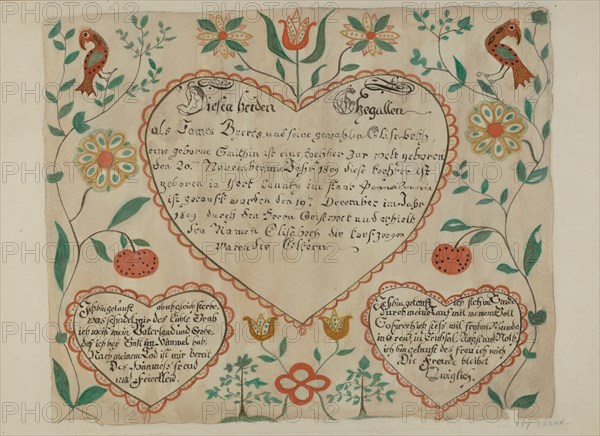 Diesen beiden Ehegatten
als James Byers und seine gemahlin Elisabeth
eine geborne Smithin ist eine tochter zur welt geboren
den 20. November im Jahr 1809 diese tochter ist
geboren in York Caunty im staat Pennsilvania
ist getauft worden den 19. December im Jahr
1809 durch den Herrn und erhielt
den Namen Elisabeth die taufzeugen
waren die Eltern
Ich bin getauft ob ich gleich sterbe
was schadet mir das kühle Grab
ich weis mein Vaterland und Erbe
das ich bey Gott im Himmel hab
Nach meinem Tod ist mir bereit
Des Himmels freud
und feierkleid
Ich bin getauft ich steh im Bunde
durch meine tauf mit meinem Gott
So sprech ich stets mit frohem Munde
in Creutz in Trübsal Angst und Noth
ich bin getauft des freu ich mich
Die Freude bleibet
Ewiglich